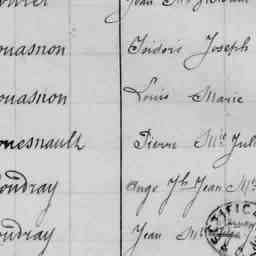 ouasnon Isidore Joseph
ouasnon Louis Marie
ouesnault Pierre Mie Jul
oudray Ange Jh Jean Mie
oudray Jean Mie